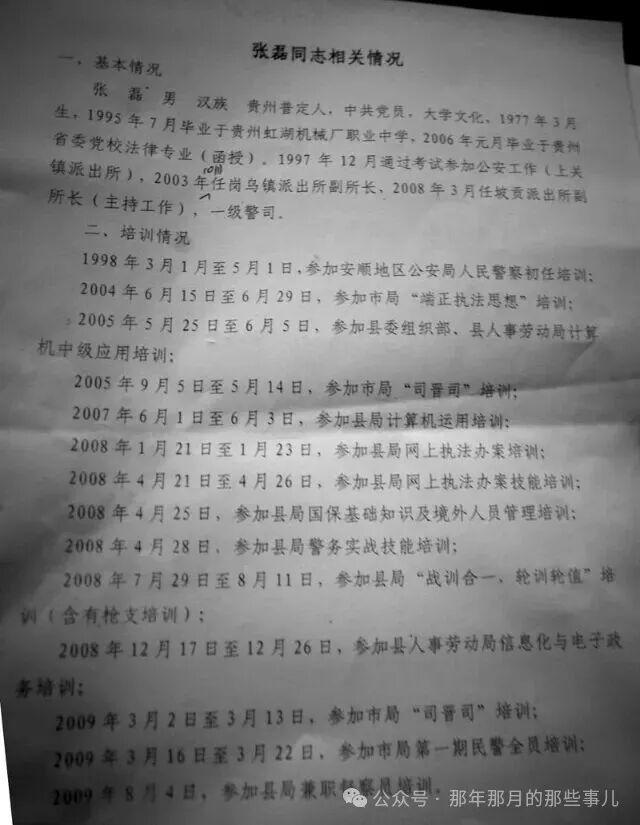 张磊同志相关情况
一、基本情况
张 磊 男 汉族 贵州普定人，中共党员，大学文化，1977年3月
生，1995年7月毕业于贵州虹湖机械厂职业中学，2006年元月毕业于贵州
省委党校法律专业（函授）。1997年12月通过考试参加公安工作（上关
镇派出所），2003年任岗乌镇派出所副所长、2008年3月任坡贡派出所副
所长（主持工作），一级警司。
二、培训情况
1998年3月1月至5月1日，参加安顺地区公安局人民警察初任培训；
2004年6月15日至6月29日，参加市局“端正执法思想”培训；
2005年5月25日至6月5日，参加县委组织部、县人事劳动局计算
机中级应用培训；
2005年9月5日至5月14日，参加市局“司晋司”培训；
2007年6月1日至6月3日，参加县局计算机运用培训；
2008年1月21日至1月23日，参加县局网上执法办案培训；
2008年4月21日至4月26日，参加县局网上执法办案技能培训；
2008年4月25日，参加县局国保基础知识及境外人员管理培训；
2008年4月28日，参加县局警务实战技能培训；
2008年7月29日至8月11日，参加县局“战训合一、轮训轮值”培
训（含有枪支培训）；
2008年12月17日至12月26日，参加县人事劳动局信息化与电子政
务培训；
2009年3月2日至3月13日，参加市局“司晋司”培训；
2009年3月16日至3月22日，参加市局第一期民警全员培训；
2009年8月4日，参加县局兼职督察员培训。
公众号·那年那月的那些事儿